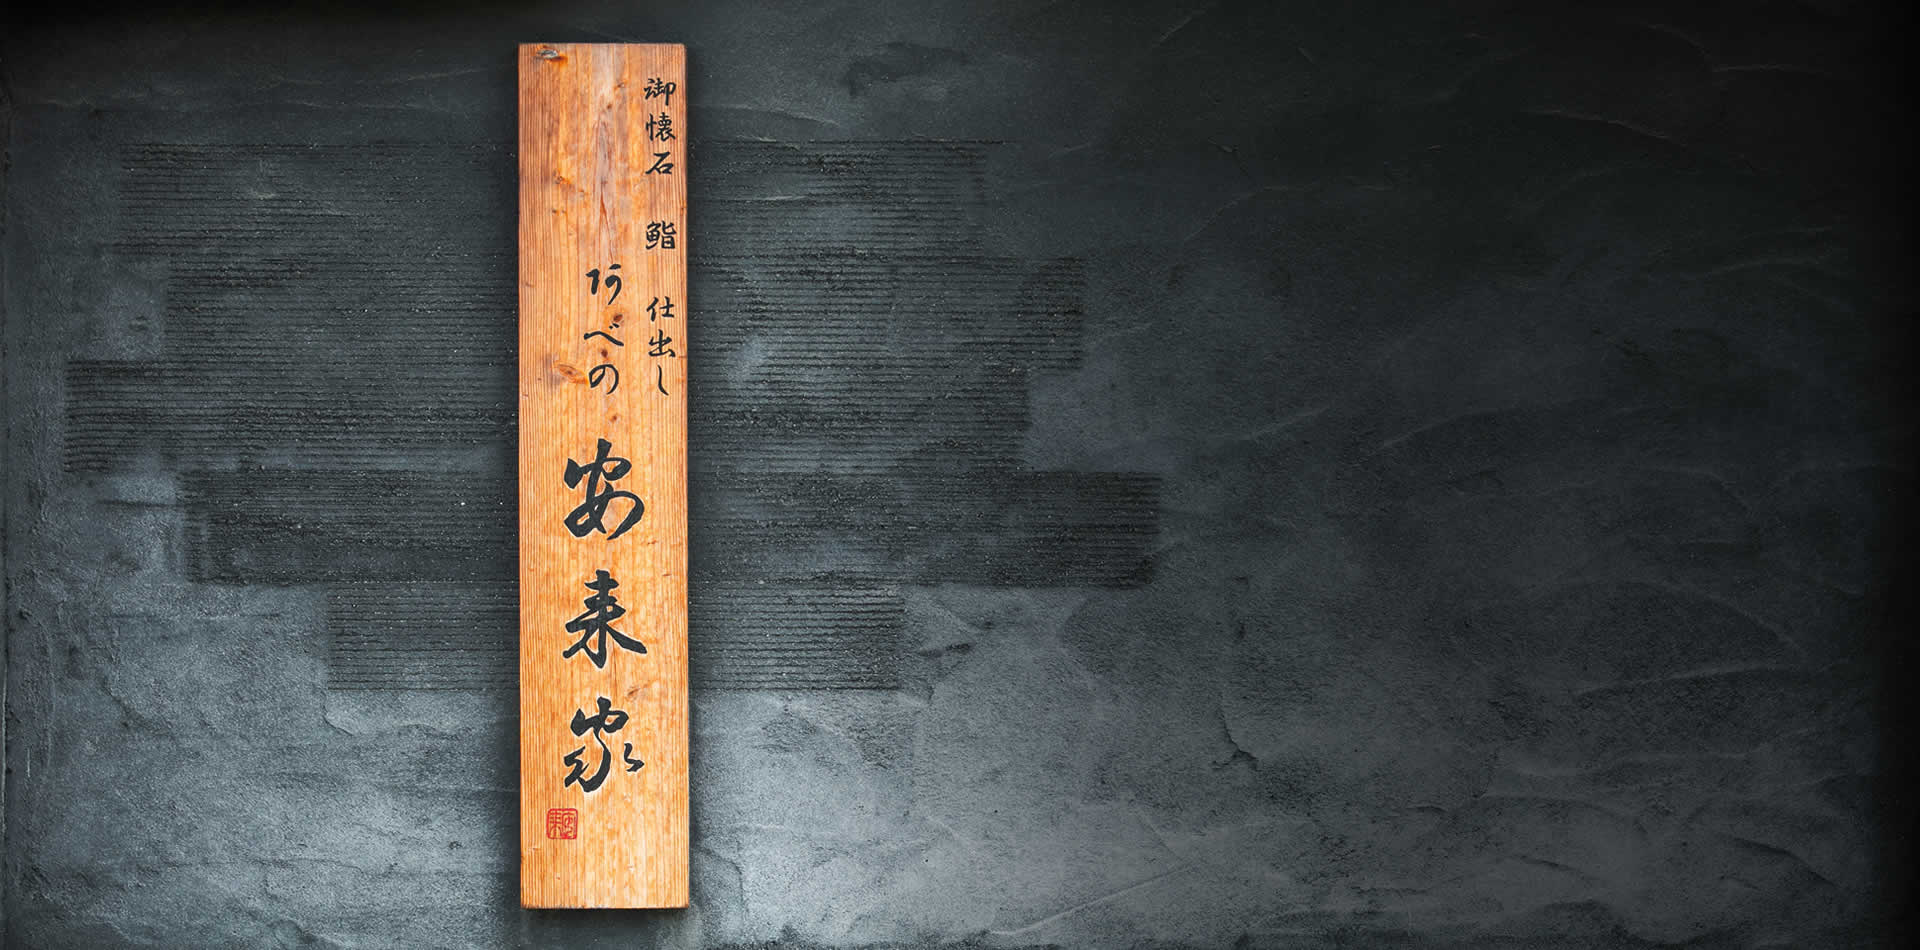 御懐石 鮨 仕出し
阿べの 安来家